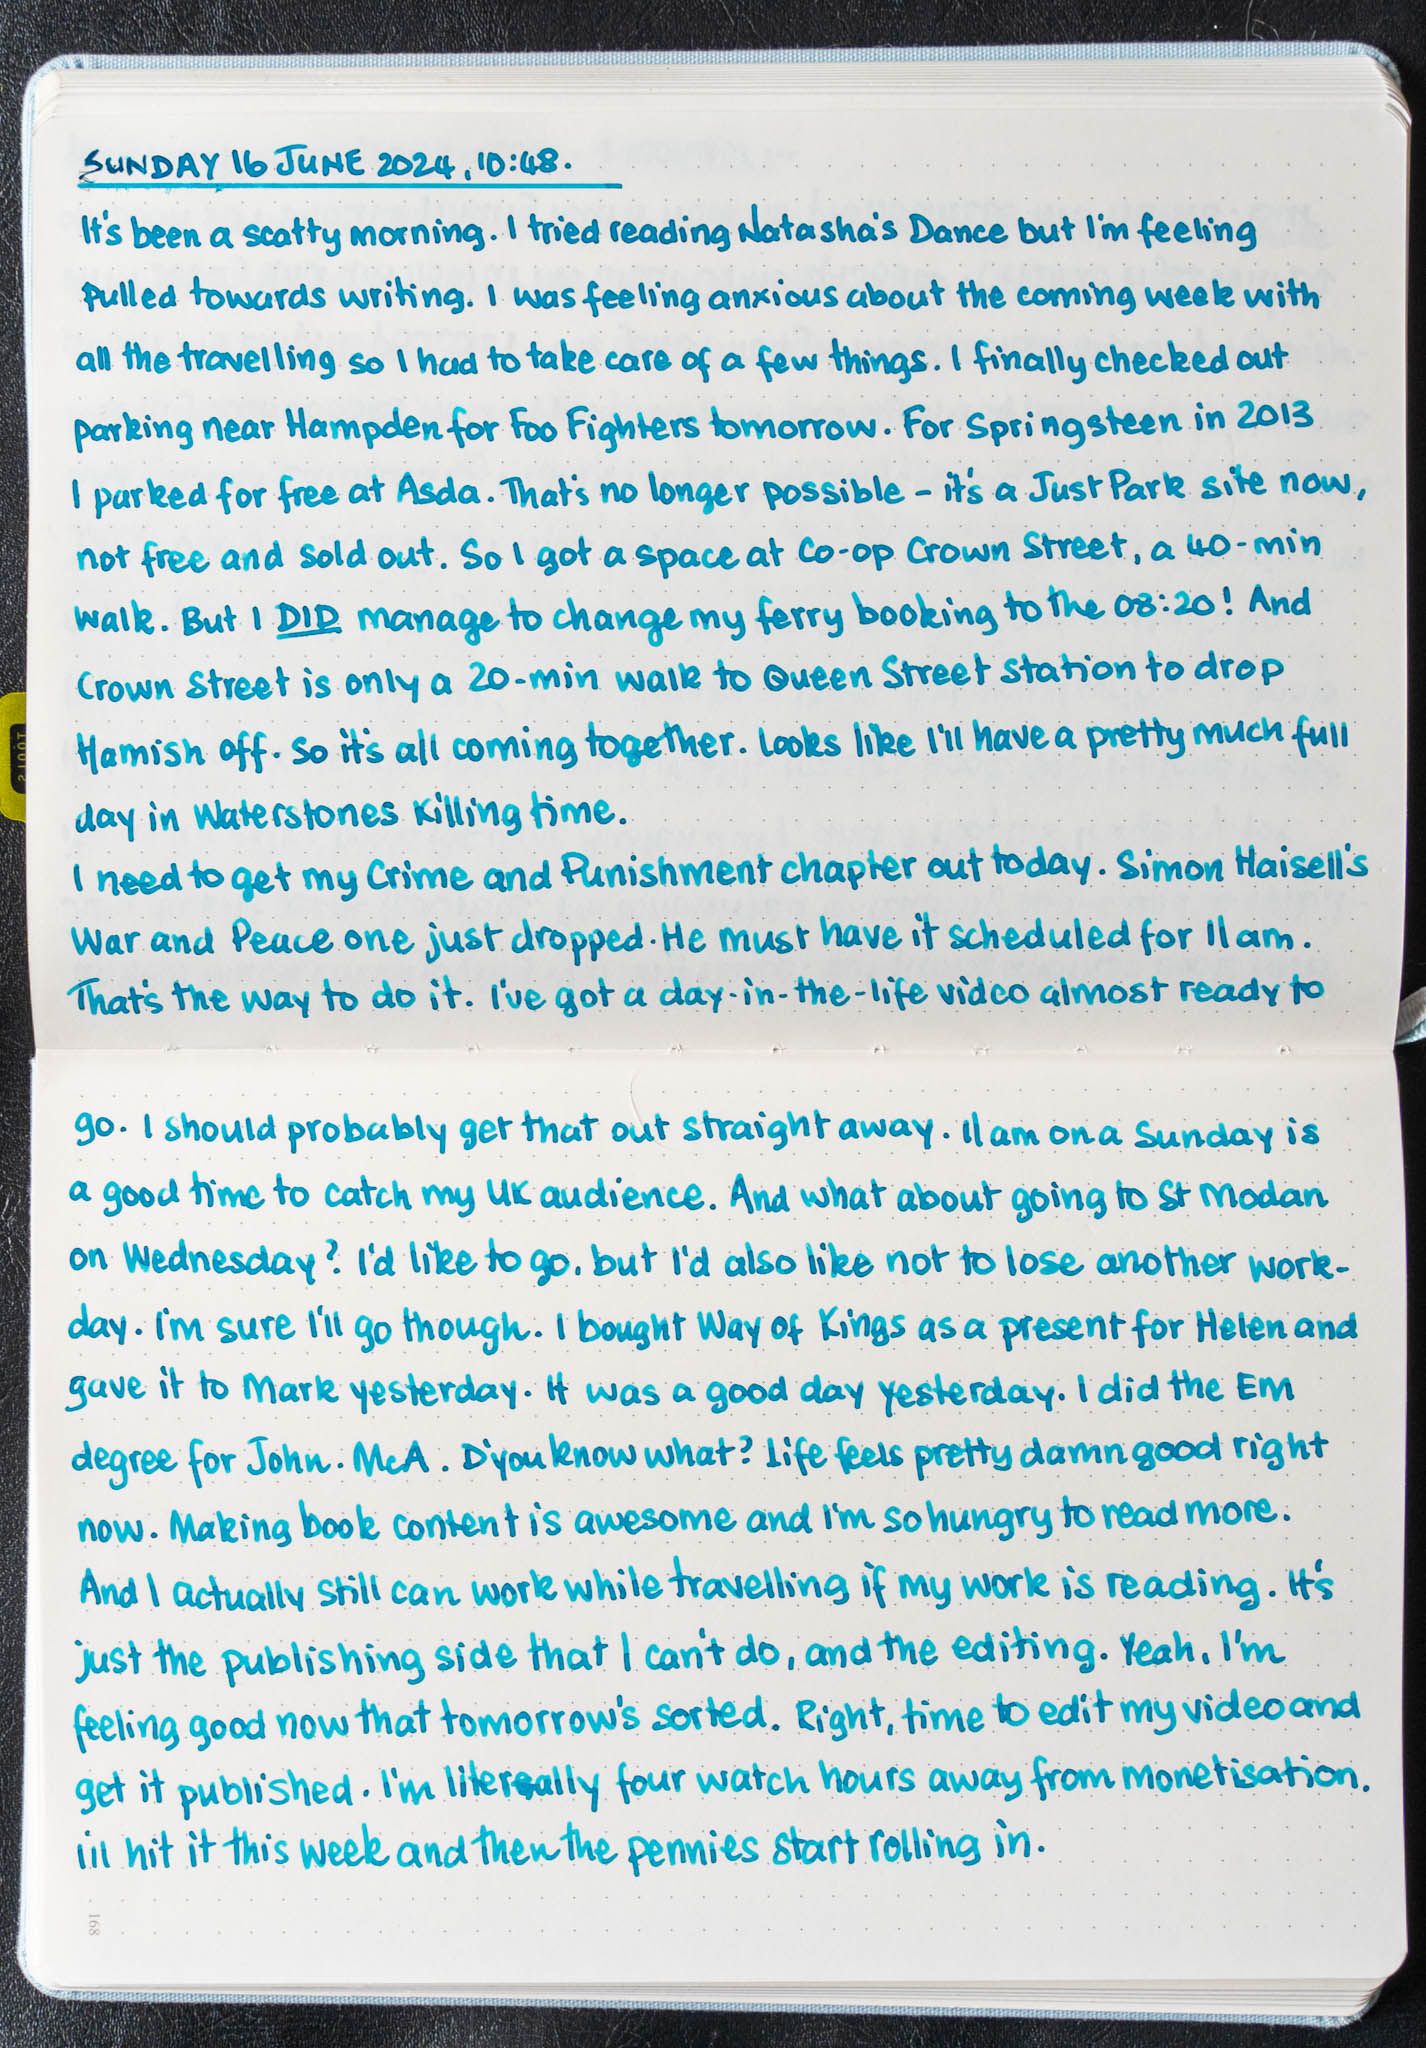 SUNDAY 16 JUNE 2024, 10:48.
It's been a scatty morning. I tried reading Natasha's Dance but I'm feeling
pulled towards writing. I was feeling anxious about the coming week with
all the travelling so I had to take care of a few things. I finally checked out
parking near Hampden for Foo Fighters tomorrow. For Springsteen in 2013
I parked for free at Asda. That's no longer possible – it's a JustPark site now,
not free and sold out. So I got a space at Co-op Crown Street, a 40-min
walk. But I DID manage to change my ferry booking to the 08:20! And
Crown Street is only a 20-min walk to Queen Street station to drop
Hamish off. So it's all coming together. Looks like I'll have a pretty much full
day in Waterstones killing time.
I need to get my Crime and Punishment chapter out today. Simon Haisell's
War and Peace one just dropped. He must have it scheduled for 11am.
That's the way to do it. I've got a day-in-the-life video almost ready to
go. I should probably get that out straight away. 11am on a Sunday is
a good time to catch my UK audience. And what about going to St Modan
on Wednesday? I'd like to go, but I'd also like not to lose another work-
day. I'm sure I'll go though. I bought Way of Kings as a present for Helen and
gave it to Mark yesterday. It was a good day yesterday. I did the EM
degree for John. McA. D'you know what? Life feels pretty damn good right
now. Making book content is awesome and I'm so hungry to read more.
And I actually still can work while travelling if my work is reading. It's
just the publishing side that I can't do, and the editing. Yeah, I'm
feeling good now that tomorrow's sorted. Right, time to edit my video and
get it published. I'm literally four watch hours away from monetisation.
I'll hit it this week and then the pennies start rolling in.
168